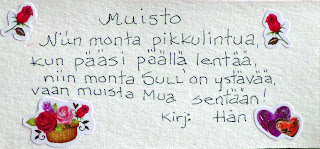 Muisto
Niin monta pikkulintua,
kun pääsi päällä lentää,
niin monta SULL'on ystävää,
vaan muista Mua sentään!
Kirj: Hän